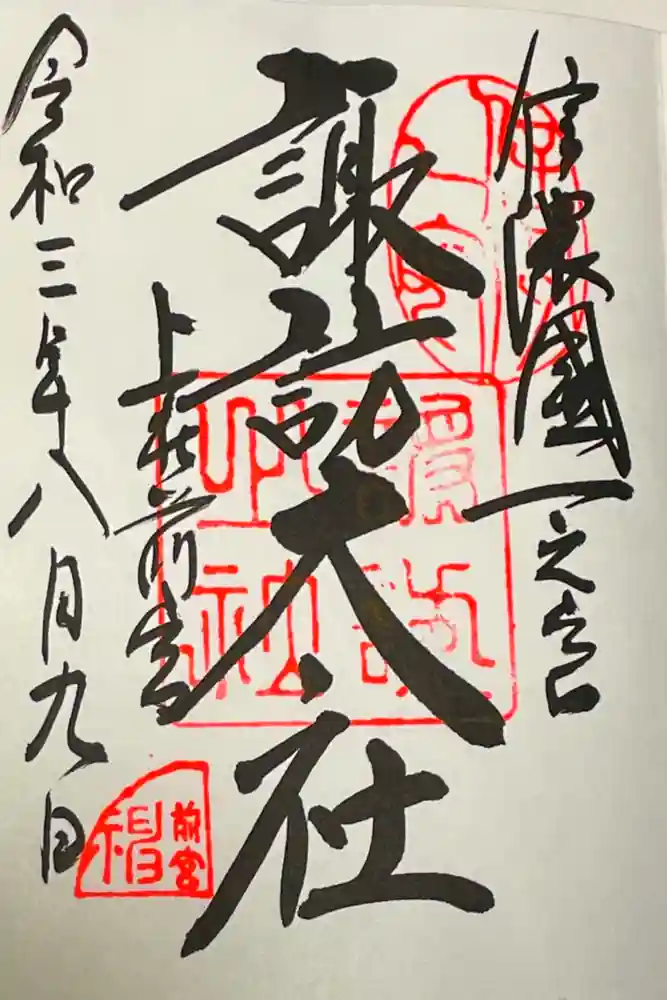 信濃國一之宮
諏訪大社
上社前宮
令和三年八月九日
前宮